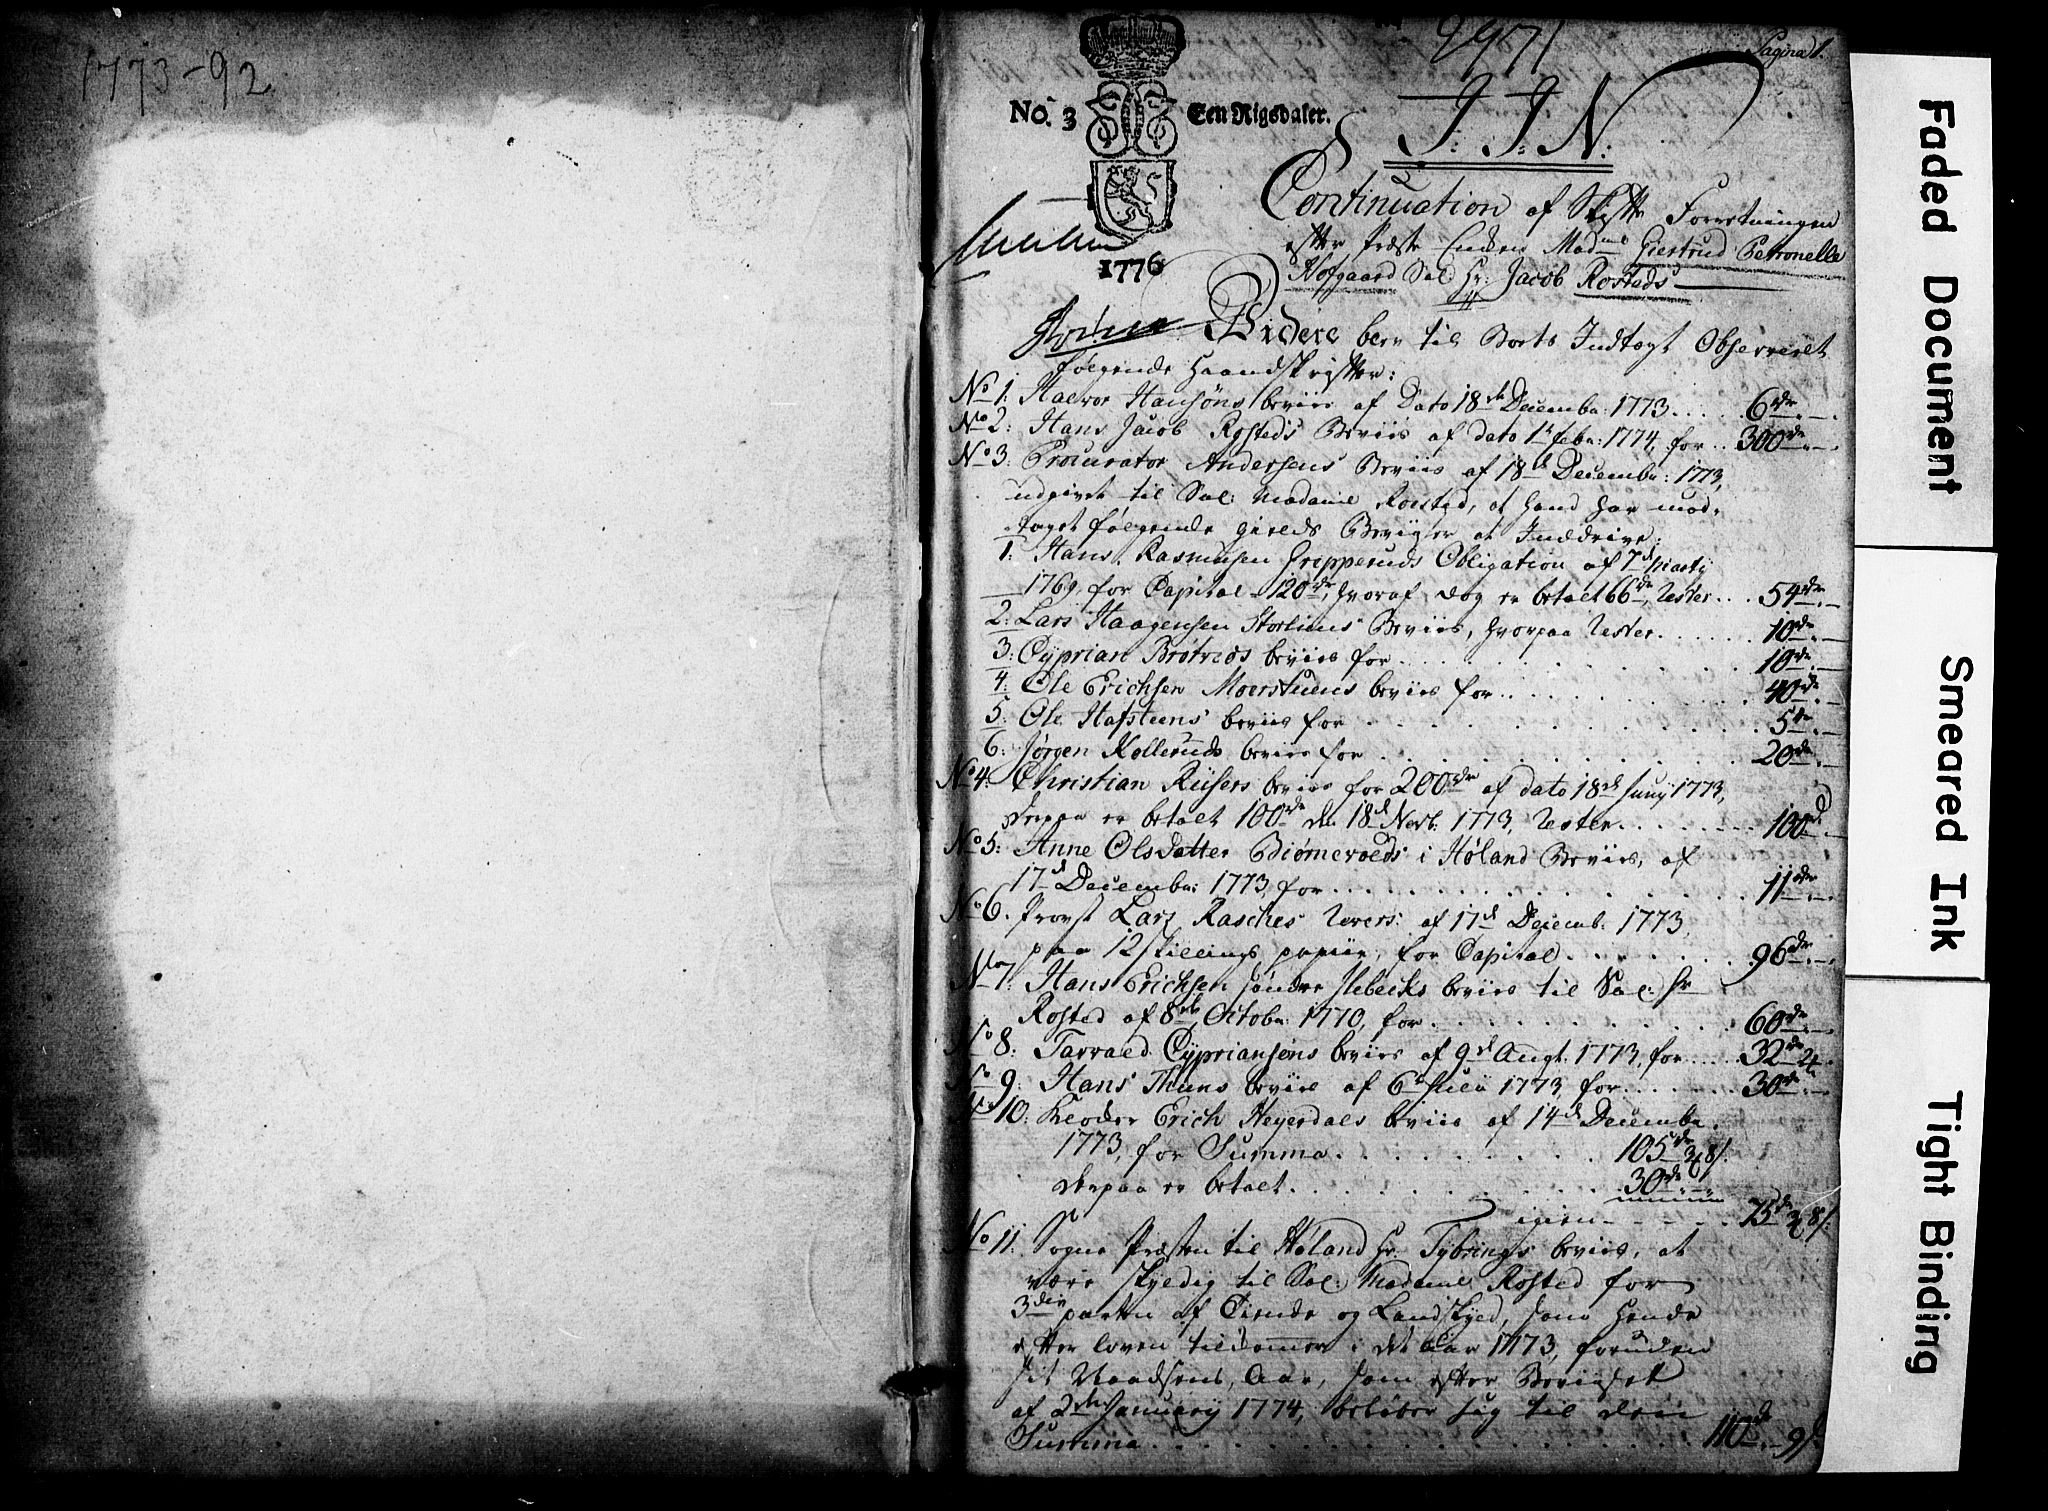 1773-92
9971
Pagina 1.
No. 3 Een Rigsdaler.
J: J: N:
Continuation af Skifte Forretningen
efter Præste Enken Madme Giertrud Petronelle
1776
Hofgaard Sal. Hr: Jacob Rosteds
Videre blev til Boets Indtægt Observeret
følgende Haandskrifter:
No 1: Halvor Hansøns beviis af Dato 18de Decembr: 1773 .... 6 rdr
No 2: Hans Jacob Rosteds Beviis af dato 1te Febr: 1774, for .. 300 rdr
No 3: Procurator Andersens Beviis af 18de Decembr: 1773,
udgivet til Sal: Madame Rosted, at hand har mod-
taget følgende gields Beviiser at Inddrive:
1: Hans Rasmusen Grepperuds Obligation af 7de Marty
1769, for Capital 120 rdr, hvoraf dog er betalt 66 rdr, Rester .. 54 rdr
2: Lars Haagensen Beviis, hvorpaa Rester ..... 10 rdr
3: Cyprian Brøtreds beviis for ..... 10 rdr
4: Ole Erichsen Moerstuens beviis for ..... 40 rdr
5: Ole Hafsteens beviis for ..... 5 rdr
6: Jørgen Kolleruds beviis for ..... 20 rdr
No 4: Christian Riisers beviis for 200 rdr af dato 18de Junij 1773,
derpaa er betalt 100 rdr den 18de Novb: 1773, Rester ..... 100 rd
No 5: Anne Olsdatter Biørneroeds i Høland Beviis, af
17de Decembr: 1773, for ..... 11 rdr
No 6. Provst Lars Rasches Revers: af 17de Decemb: 1773,
paa 12 skillings papiir, for Capital ..... 96 rdr
No 7: Hans Erichsen søndre beviis til Sal: Hr
Rosted af 8de Octobr: 1770, for ..... 60 rdr
No 8: Tarraed Cypriansøns beviis af 9de Augt: 1773, for .... 32 rdr 2
No 9: Hans Thues beviis af 6te Julii 1773, for ..... 30 rdr
No 10: Erich Heyerdals beviis af 14de Decembr.
1773, for Summa ..... 105 rdr 3 8 s.
derpaa er betalt ..... 30 rdr
igien ..... 75 rdr 3 8 s:
No 11: Sogne Præsten til Høland Hr. Tybrings beviis, at
være skyldig til Sal: Madame Rosted for
3die parten af Tiende og Landskyld, som hende
efter loven tildømmes i det aar 1773, foruden
sit Naadsens, Aar, som efter Beviiset
af 2den January 1774, beløber sig til den
Summa ..... 110 rdr - 9 s.
Faded Document
Smeared Ink
Tight Binding